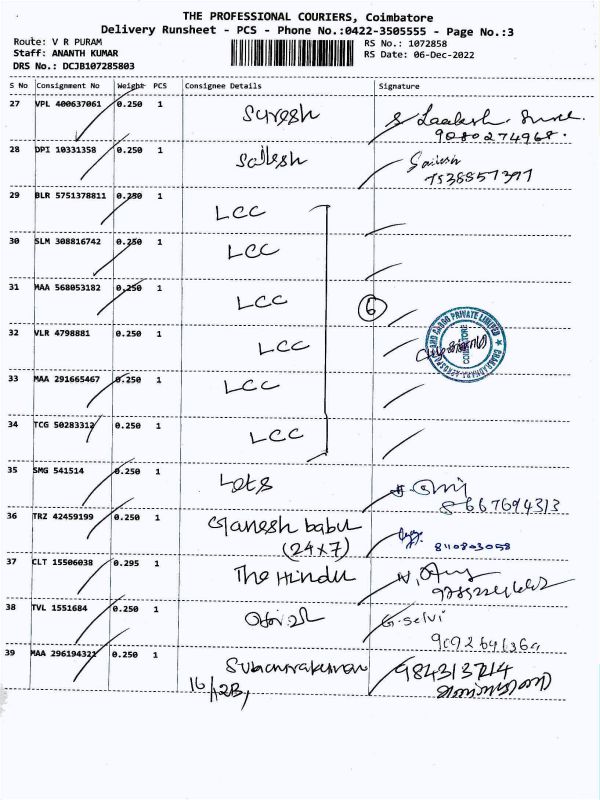 THE PROFESSIONAL COURIERS, Coimbatore
Delivery Runsheet - PCS - Phone No.:0422-3505555 - Page No.:3
Route: V R PURAM
Staff: ANANTH KUMAR
DRS No.: DCJB107285803
RS No.: 1072858
RS Date: 06-Dec-2022
S No Consignment No Weight PCS Consignee Details Signature
27 VPL 400637061 0.250 1 Suresh
9080274968.
28 DPI 10331358 0.250 1 Sailesh Sailesh
7538857397
29 BLR 5751378811 0.250 1 LCC
30 SLM 308816742 0.250 1 LCC
31 MAA 568053182 0.250 1 LCC 6
32 VLR 4798881 0.250 1 LCC
COIMBATORE
33 MAA 291665467 0.250 1 LCC
34 TCG 50283312 0.250 1 LCC
35 SMG 541514 0.250 1 Lets
8667694313
36 TRZ 42459199 0.250 1 Ganesh babu
(24x7) 8110803058
37 CLT 15506038 0.295 1 The Hindu
38 TVL 1551684 0.250 1 G. Selvi
39 MAA 296194321 0.250 1 984313714
16/12B,